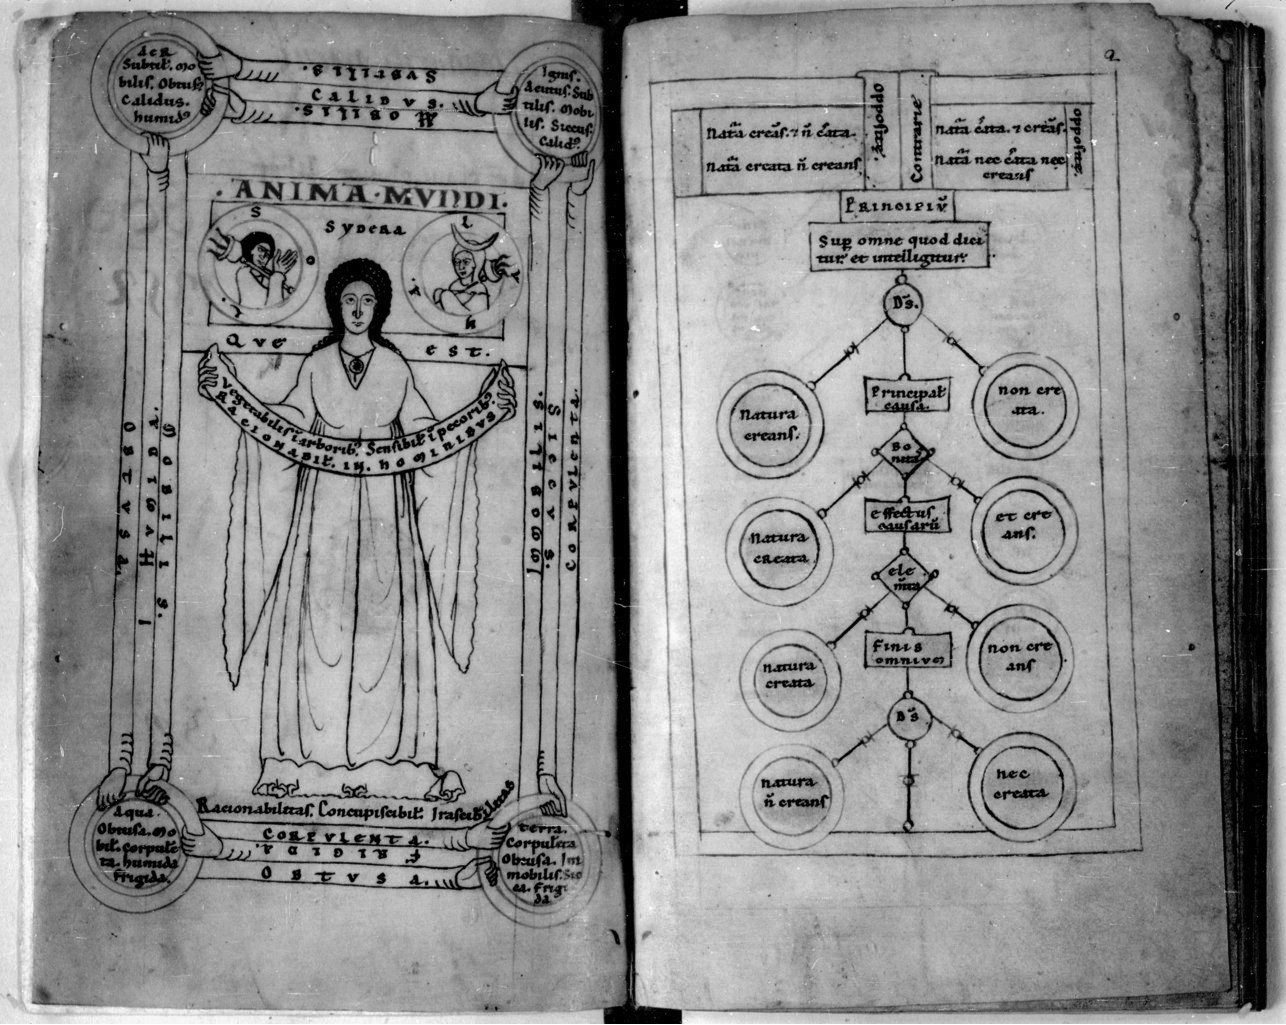 aeR
Subtil'. mo
bilis. Obtus'
Calidus.
humid'
SVBTILIS.
CALIDVS.
MOBILIS.
Ignis.
Acutus. Sub
tilis. Mobi
lis. Siccus.
Calid'.
.ANIMA.MVNDI.
S
O
L
SYDERA
L
V
N
A
QVE
EST.
Vegetabilis ī arborib'. Sensibil' ī pecorib'.
RACIONABIL'. IN. HOMINIBVS.
OBTVSA.
HVMIDA
MOBILIS.
IMMOBILIS.
SICCVS.
CORPVLENTA.
Racionabilitas. Concupiscibil'. Irascibilitas
Aqua.
Obtusa. Mo
bil'. Corpulē
ta. humida
Frigida.
CORPVLENTA.
FRIGIDA.
OBTVSA.
Terra.
Corpulēta
Obtusa. Im
mobilis. Sic
ca. Frigi
da
2
Natā creās. ⁊ ñ c̄ata.
Natā creata ñ creans
oppositā.
Contrarie
natā c̄ata. ⁊ creās.
natā nec c̄ata nec
creans
oppositā.
PRINCIPIŪ
Sup omne quod dici
tur. et intelligitur.
D̄s.
Natura
creans.
non cre
ata.
Principal'
causa.
Bo
nitas
Natura
creata
et cre
ans.
effectus
causarū
ele
m̄ta
natura
creata
non cre
ans
FINIS
OMNIVM
D̄s
natura
ñ creans
nec
creata